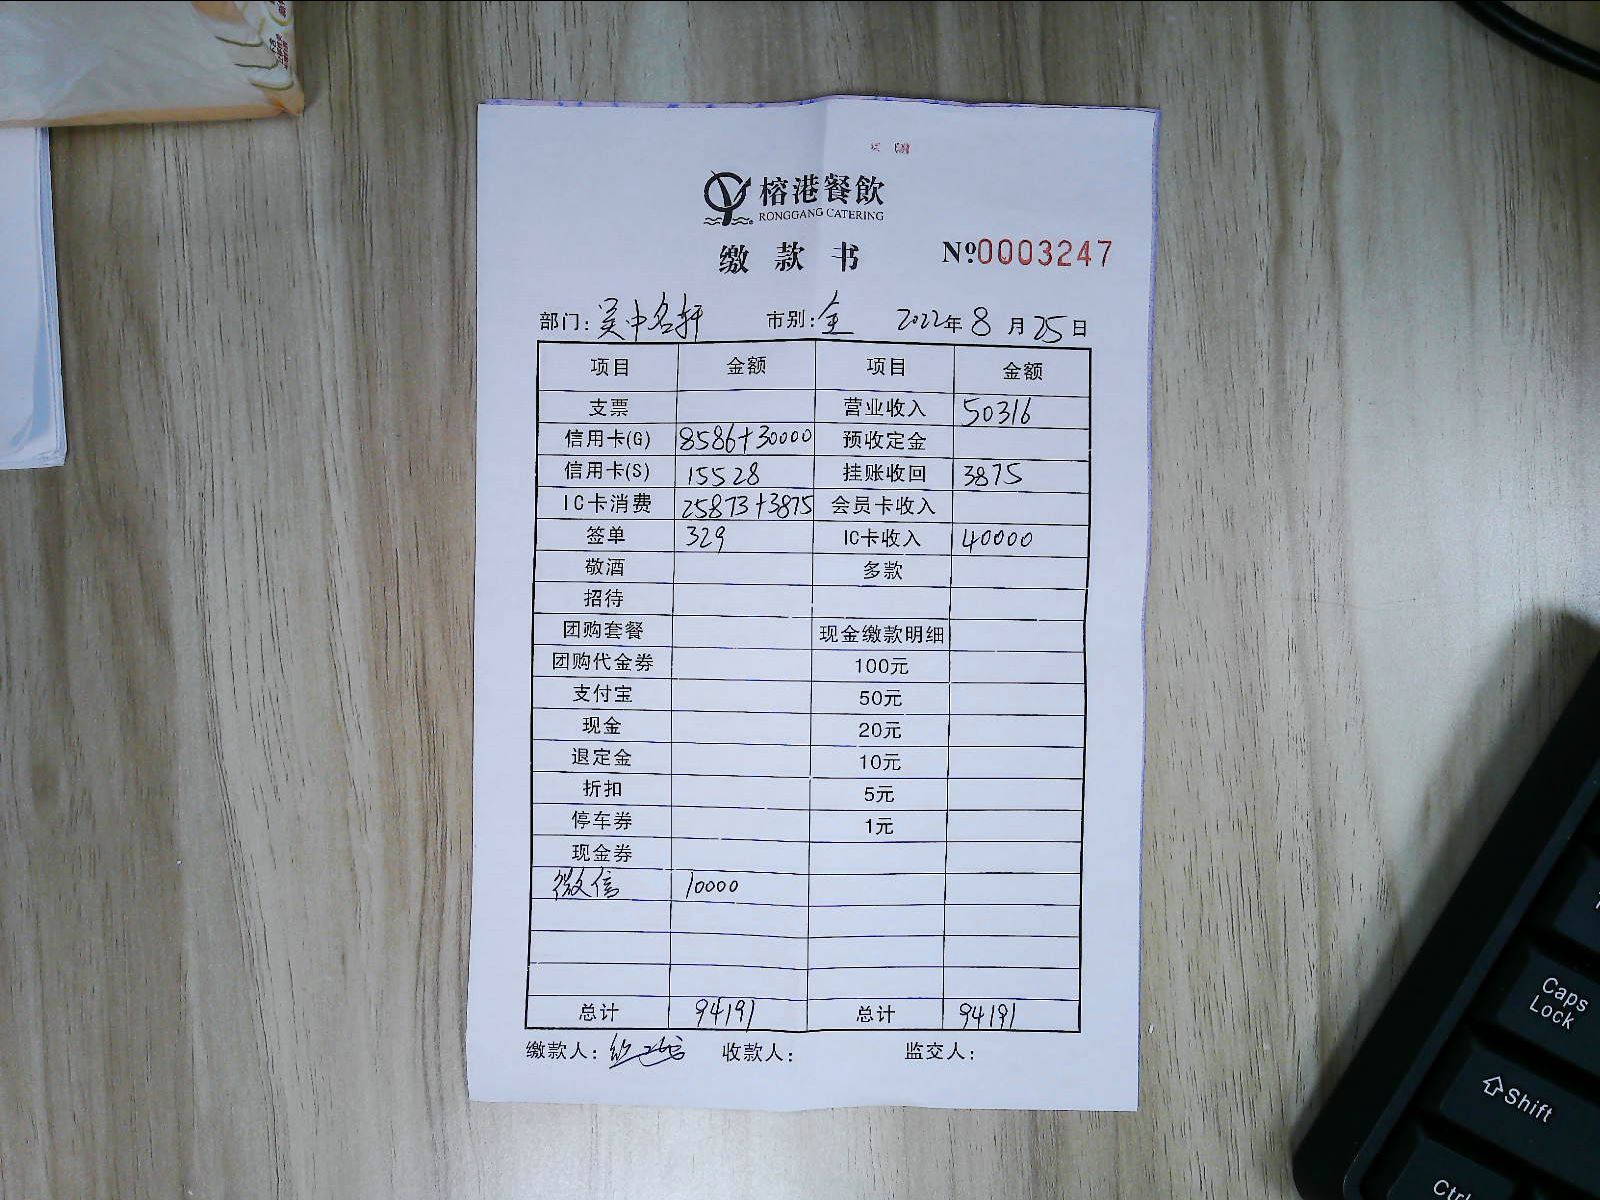 榕港餐飲
RONGGANG CATERING
缴款书 №0003247
部门: 吴中名轩 市别: 全 2022年8月25日
项目 金额 项目 金额
支票 营业收入 50316
信用卡(G) 8586+30000 预收定金
信用卡(S) 15528 挂账收回 3875
IC卡消费 25873+3875 会员卡收入
签单 329 IC卡收入 40000
敬酒 多款
招待
团购套餐 现金缴款明细
团购代金券 100元
支付宝 50元
现金 20元
退定金 10元
折扣 5元
停车券 1元
现金券
微信 10000
总计 94191 总计 94191
缴款人: 收款人: 监交人:
Caps
Lock
Shift
Ctrl